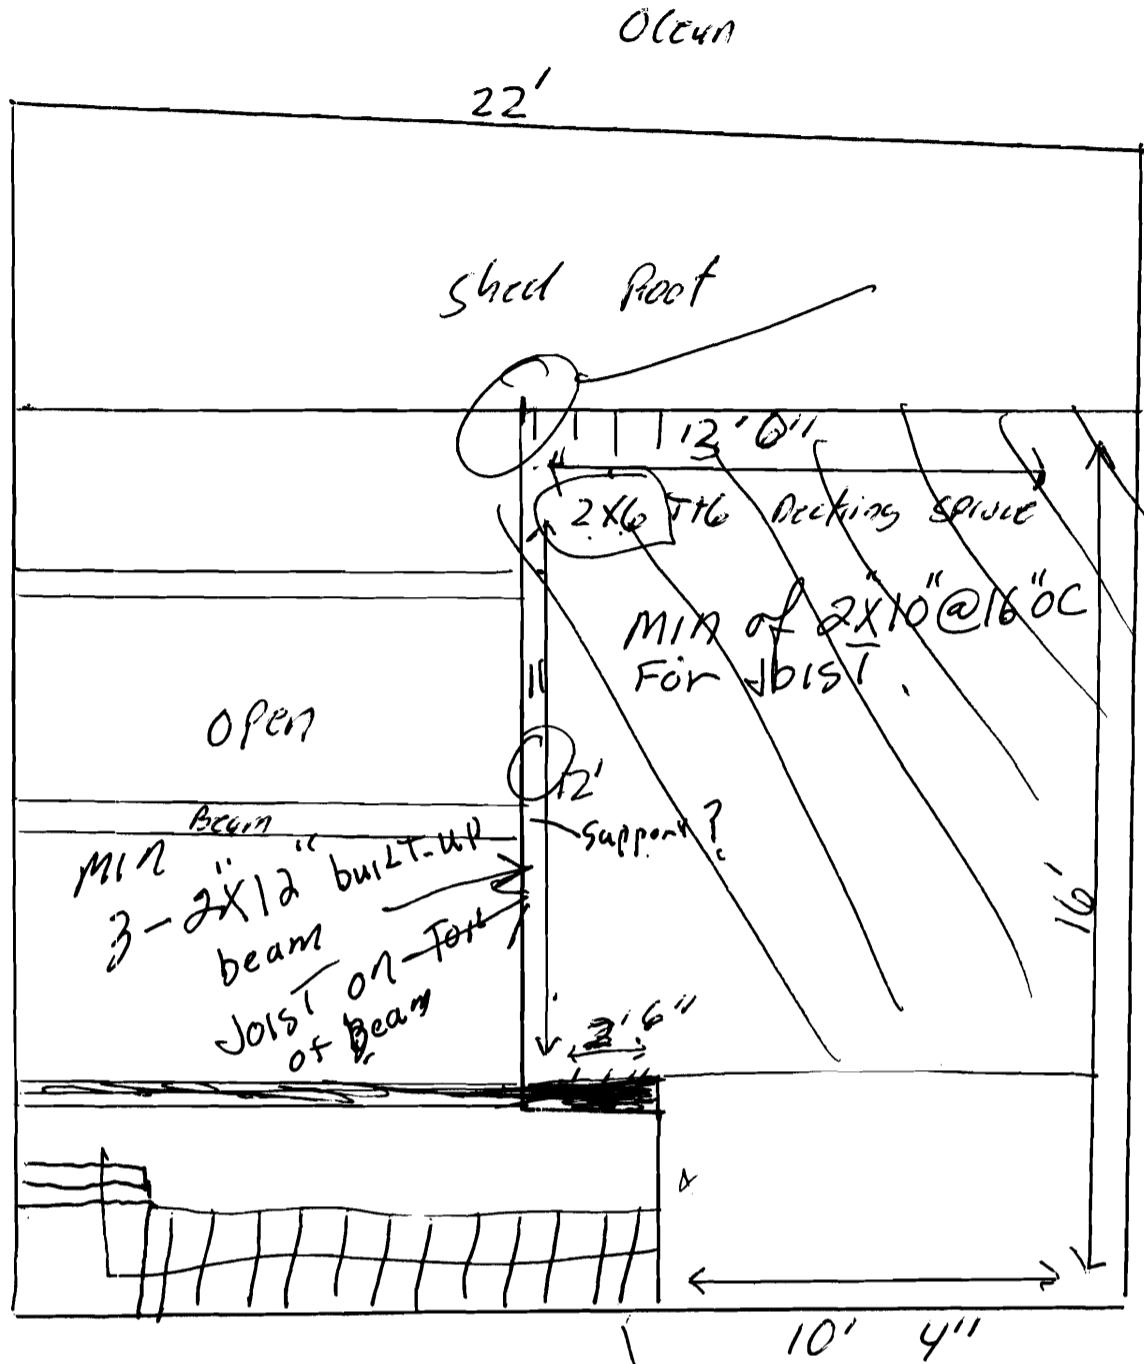 Ocean
22'
Shed Roof
12' 6"
2x6 T+G Decking Spruce
MIN of 2"x10"@16"OC
For JOIST.
Open
12'
Beam
Support?
MIN
3-2"x12" built-up
beam
JOIST on Top
of Beam
16'
2'6"
10' 4"